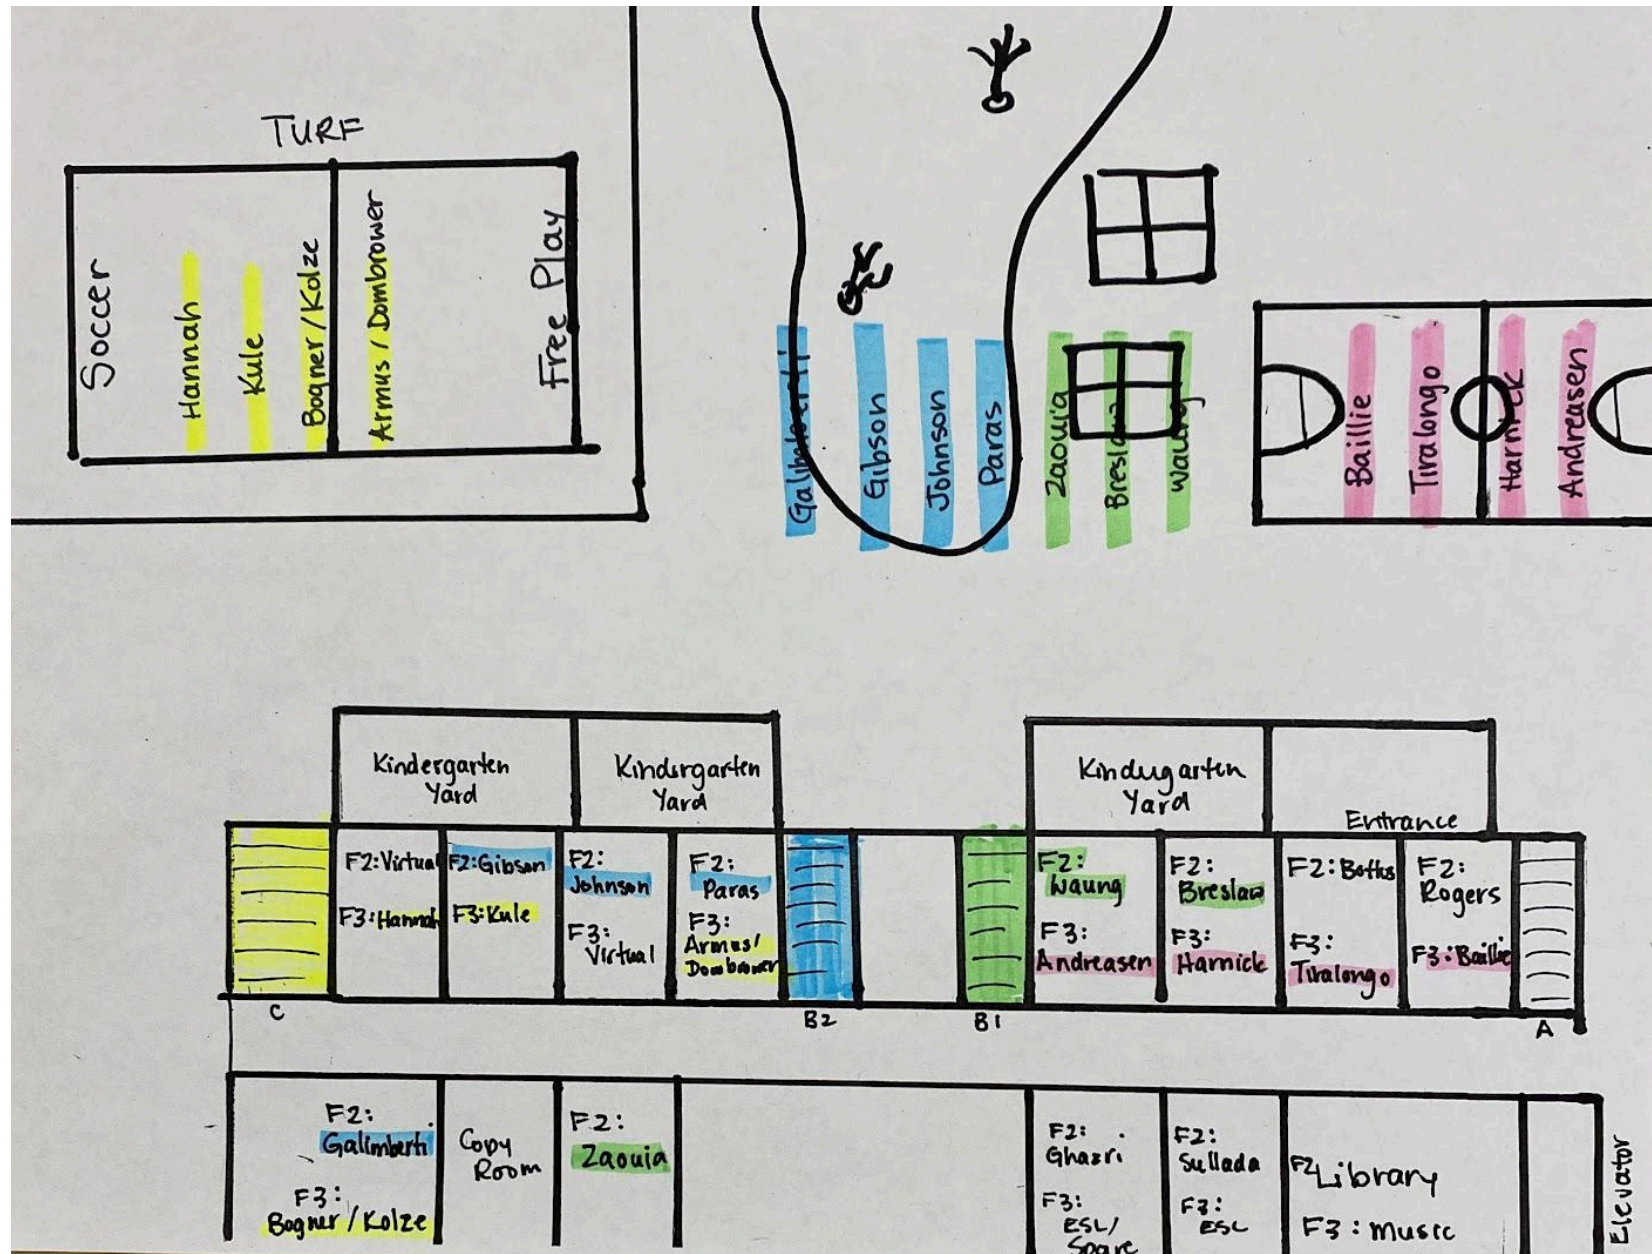 TURF
Soccer
Hannah
Kule
Bogner / Kolze
Armus / Dombrower
Free Play
Galimberti
Gibson
Johnson
Paras
Zaouia
Breslaw
Waung
Baillie
Tiralongo
Harnick
Andreasen
Kindergarten
Yard
Kindergarten
Yard
Kindergarten
Yard
Entrance
F2: Virtual
F3: Hannah
F2: Gibson
F3: Kule
F2:
Johnson
F3:
Virtual
F2:
Paras
F3:
Armus/
Dombrower
F2:
Waung
F3:
Andreasen
F2:
Breslaw
F3:
Harnick
F2:
F3:
Tiralongo
F2:
Rogers
F3: Baillie
C
B2
B1
A
F2:
Galimberti
F3:
Bogner / Kolze
Copy
Room
F2:
Zaouia
F2:
Ghazri
F3:
ESL/
Spare
F2:
Sullada
F3:
ESL
F2 Library
F3: Music
Elevator